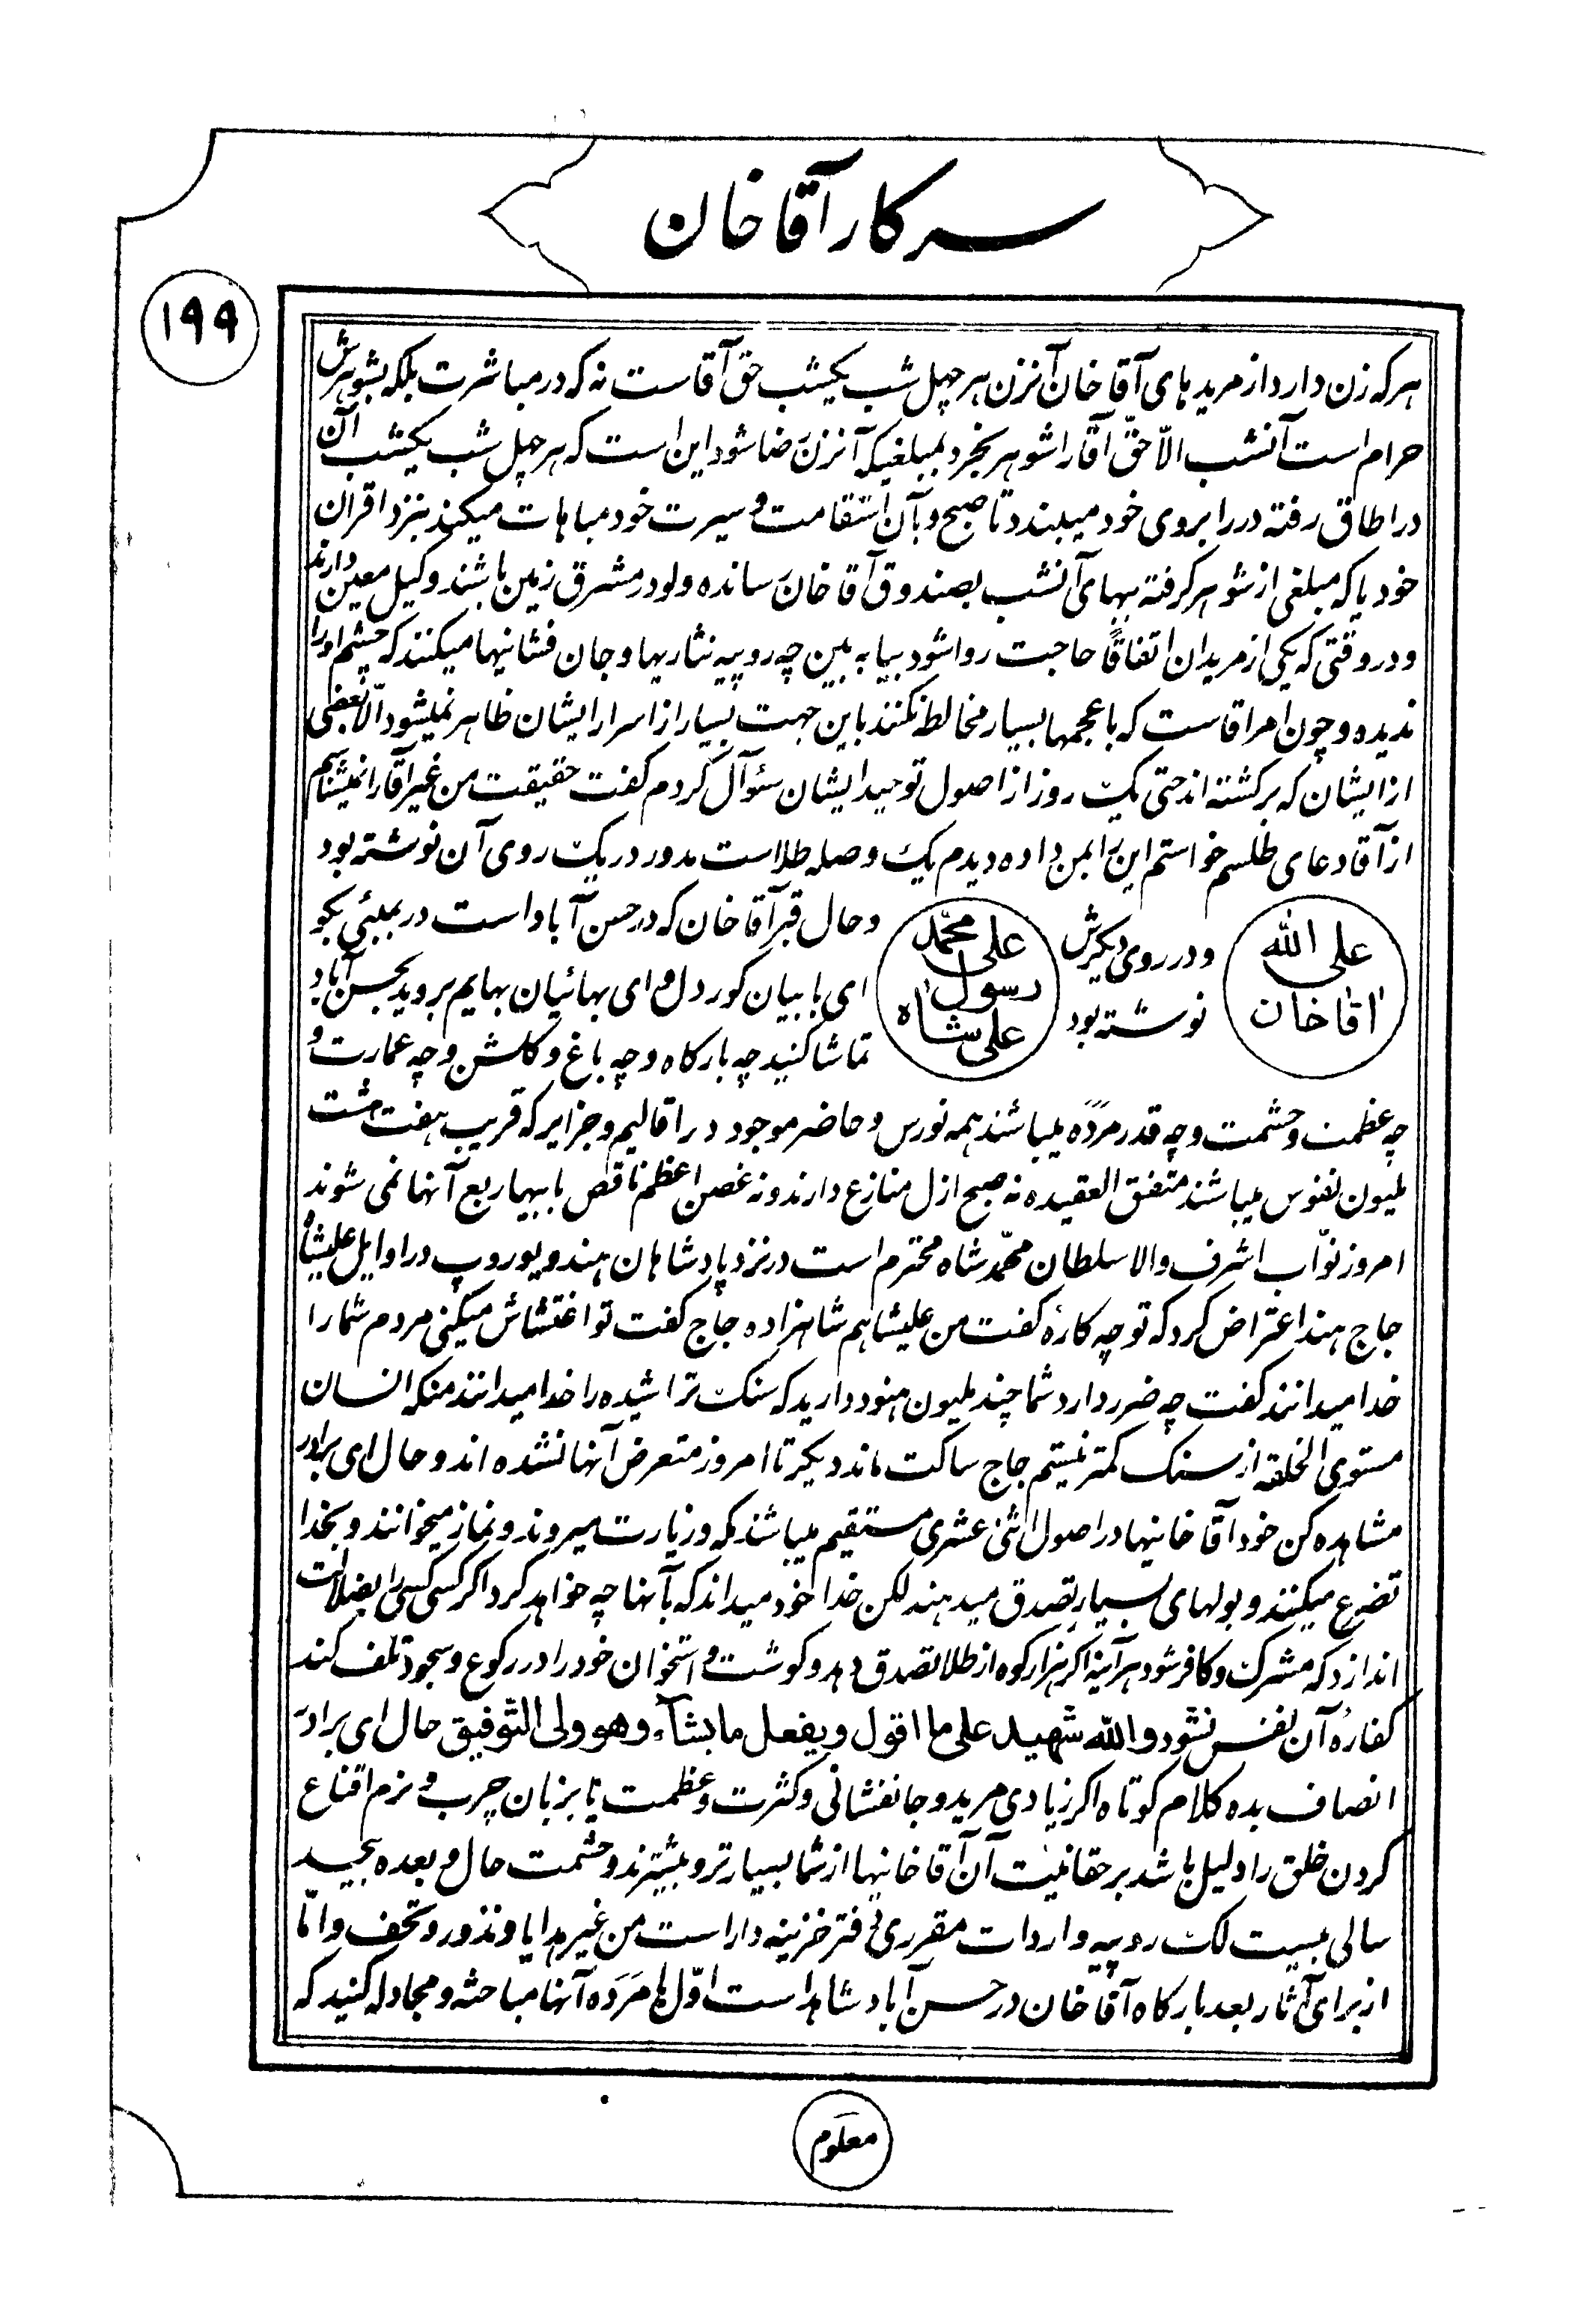 سرکار آقا خان
۱۹۹
هرکه زن دارد از مریدهای آقا خان آنزن هر چهل شب یکشب حق آقاست نه که در مباشرت بلکه بشوهرش
حرام است آنشب الّا حقّ آقا را شوهر بخرد بمبلغیکه آنزن رضا شود این است که هر چهل شب یکشب آن
در اطاق رفته در را بروی خود میبندد تا صبح و بآن استقامت و سیرت خود مباهات میکند بنزد اقران
خود یا که مبلغی از شوهر گرفته ببهای آنشب بصندوق آقا خان رسانده ولو در مشرق زمین باشند وکیل معین دارند
و در وقتی که یکی از مریدان اتفاقاً حاجت روا شود بیا به بین چه روپیه نثاریها و جان فشانیها میکنند که چشم او را
ندیده و چون امر آقاست که با عجمها بسیار مخالطه نکنند باین جهت بسیار از اسرار ایشان ظاهر نمیشود الّا بعضی
از ایشان که برگشته اند حتی یک روز از اصول توحید ایشان سئوآل کردم گفت حقیقت من غیر آقا را نمیشناسم
از آقا دعای طلسم خواستم این را بمن داده دیدم یک وصله طلاست مدور در یک روی آن نوشته بود
علی الله
آقا خان
و در روی دیگرش
نوشته بود
علی محمّد
رسول
علی شاه
و حال قبر آقا خان که در حسن آباد است در بمبئی بگو
ای بابیان کور دل و ای بهائیان بهایم بروید بحسن آباد
تماشا کنید چه بارگاه و چه باغ و گلشن و چه عمارت و
چه عظمت و حشمت و چه قدر مَرَدَه میباشند همه نورس و حاضر موجود در اقالیم و جزایر که قریب هفت هشت
ملیون نفوس میباشند متفق العقیده نه صبح ازل منازع دارند و نه غصن اعظم ناقص بابیها ربع آنها نمی شوند
امروز نوّاب اشرف والا سلطان محمّد شاه محترم است در نزد پادشاهان هند و یوروپ در اوایل علیشاه
جاج هند اعتراض کرد که تو چه کارهٔ گفت من علیشاهم شاهزاده جاج گفت تو اغتشاش میکنی مردم شما را
خدا میدانند گفت چه ضرر دارد شما چند ملیون هنود دارید که سنک تراشیده را خدا میدانند منکه انسان
مستوی الخلقه از سنک کمتر نیستم جاج ساکت ماند دیگر تا امروز متعرض آنها نشده اند و حال ای برادر
مشاهده کن خود آقا خانیها در اصول اثنی عشری مستقیم میباشند مکه و زیارت میروند و نماز میخوانند و بخدا
تضرع میکنند و پولهای بسیار تصدق میدهند لکن خدا خود میداند که بآنها چه خواهد کرد اگر کسی کسی را بضلالت
اندازد که مشرک و کافر شود هر آینه اگر هزار کوه از طلا تصدق دهد و گوشت و استخوان خود را در رکوع و سجود تلف کند
کفارهٔ آن نفس نشود والله شهید علی ما اقول و یفعل ما یشآء وهو ولی التوفیق حال ای برادر
انصاف بده کلام کوتاه اگر زیادی مرید و جانفشانی و کثرت و عظمت یا بزبان چرب و نرم اقناع
کردن خلق را دلیل باشد بر حقانیت آن آقا خانیها از شما بسیارتر و بیشترند و حشمت حال و بعده بجسد
سالی بیست لک روپیه واردات مقرری دفتر خزینه دار است من غیر هدایا و نذور و تحف و امّا
از برای آثار بعد بارگاه آقا خان در حسن آباد شاهد است اوّل با مَرَدَه آنها مباحثه و مجادله کنید که
معلوم